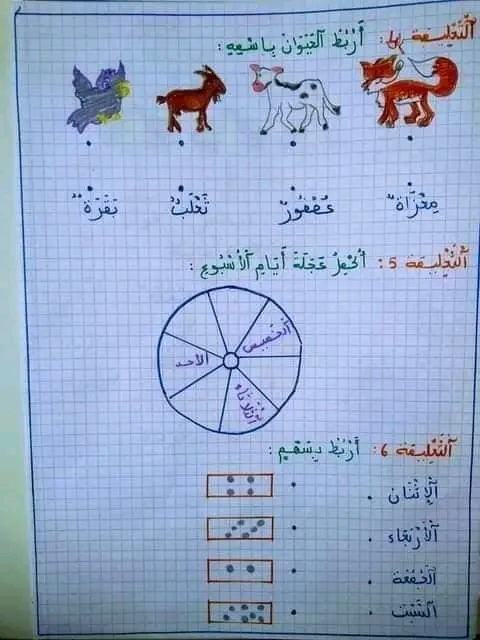 التعليمة 4: أربط الحيوان باسمه:
معزاة عصفور ثعلب بقرة
التعليمة 5: أكمل عجلة أيام الأسبوع:
الخميس
الأحد
الثلاثاء
التعليمة 6: أربط بسهم:
الإثنان
الأربعاء
الجمعة
السبت